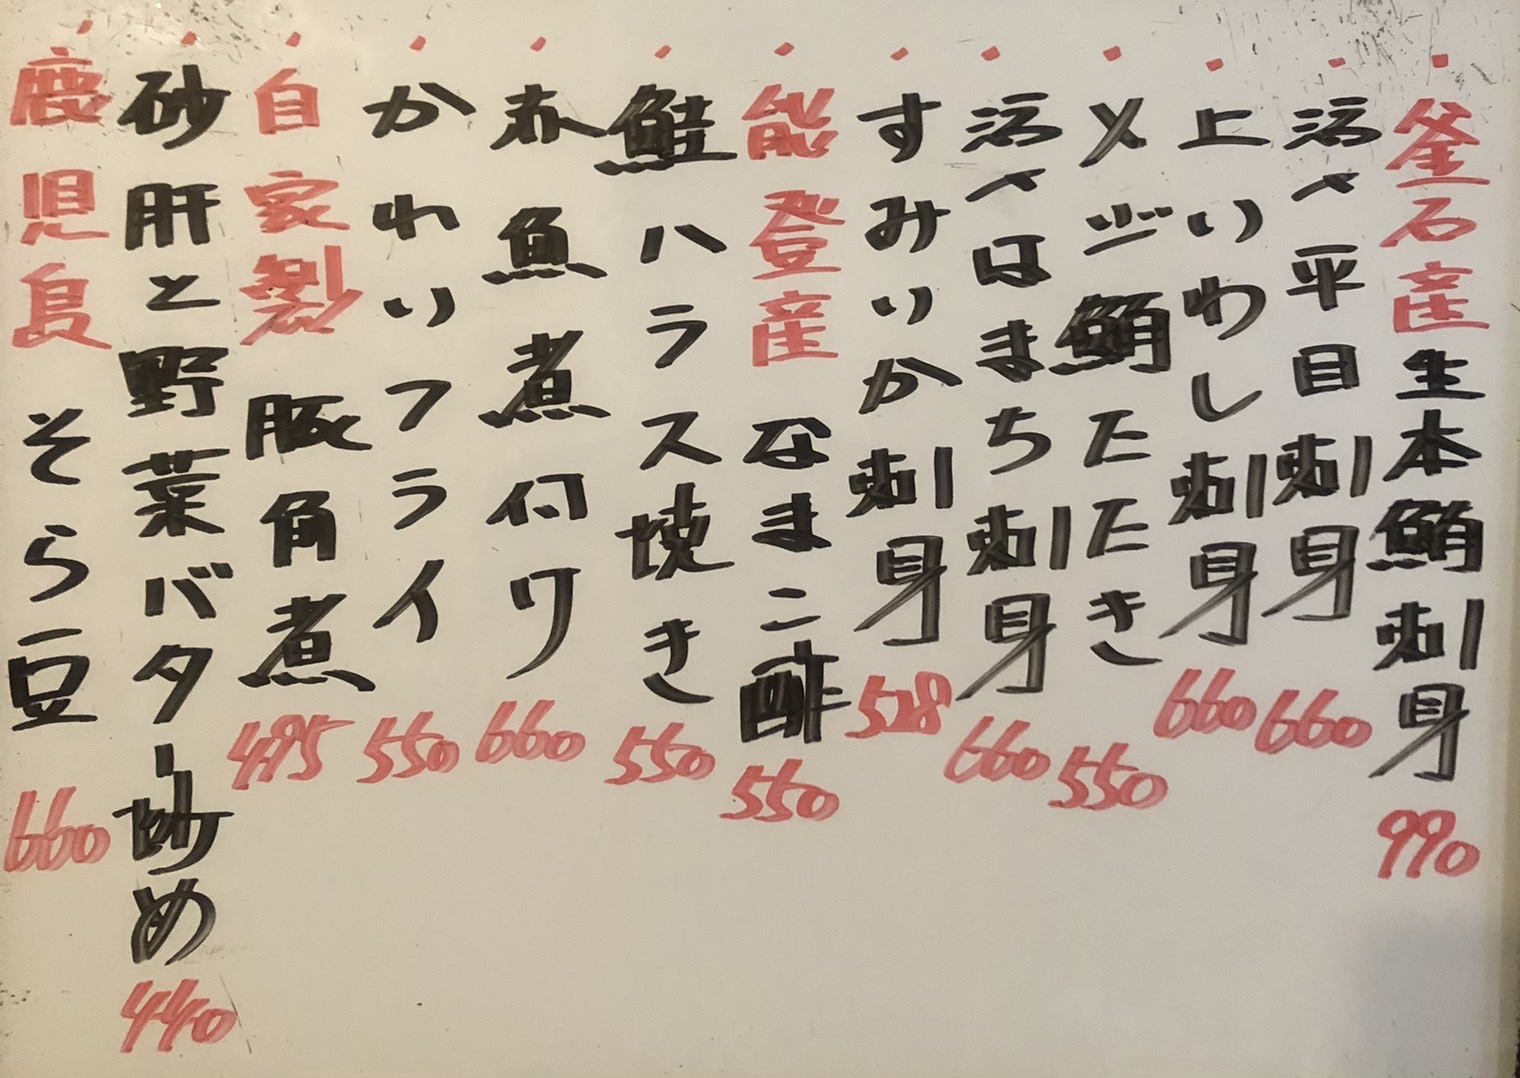 ・釜石産生本鮪刺身 990
・活〆平目刺身 660
・上いわし刺身 660
・メジ鮪たたき 550
・活〆はまち刺身 660
・すみいか刺身 528
・能登産 なまこ酢 550
・鮭ハラス焼き 550
・赤魚煮付け 660
・かれいフライ 550
・自家製 豚角煮 495
・砂肝と野菜バター炒め 440
・鹿児島 そら豆 660